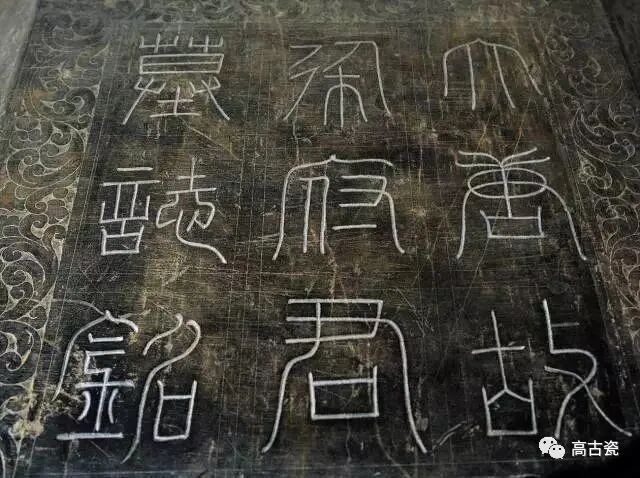 大唐故
徐府君
墓誌銘
高古瓷